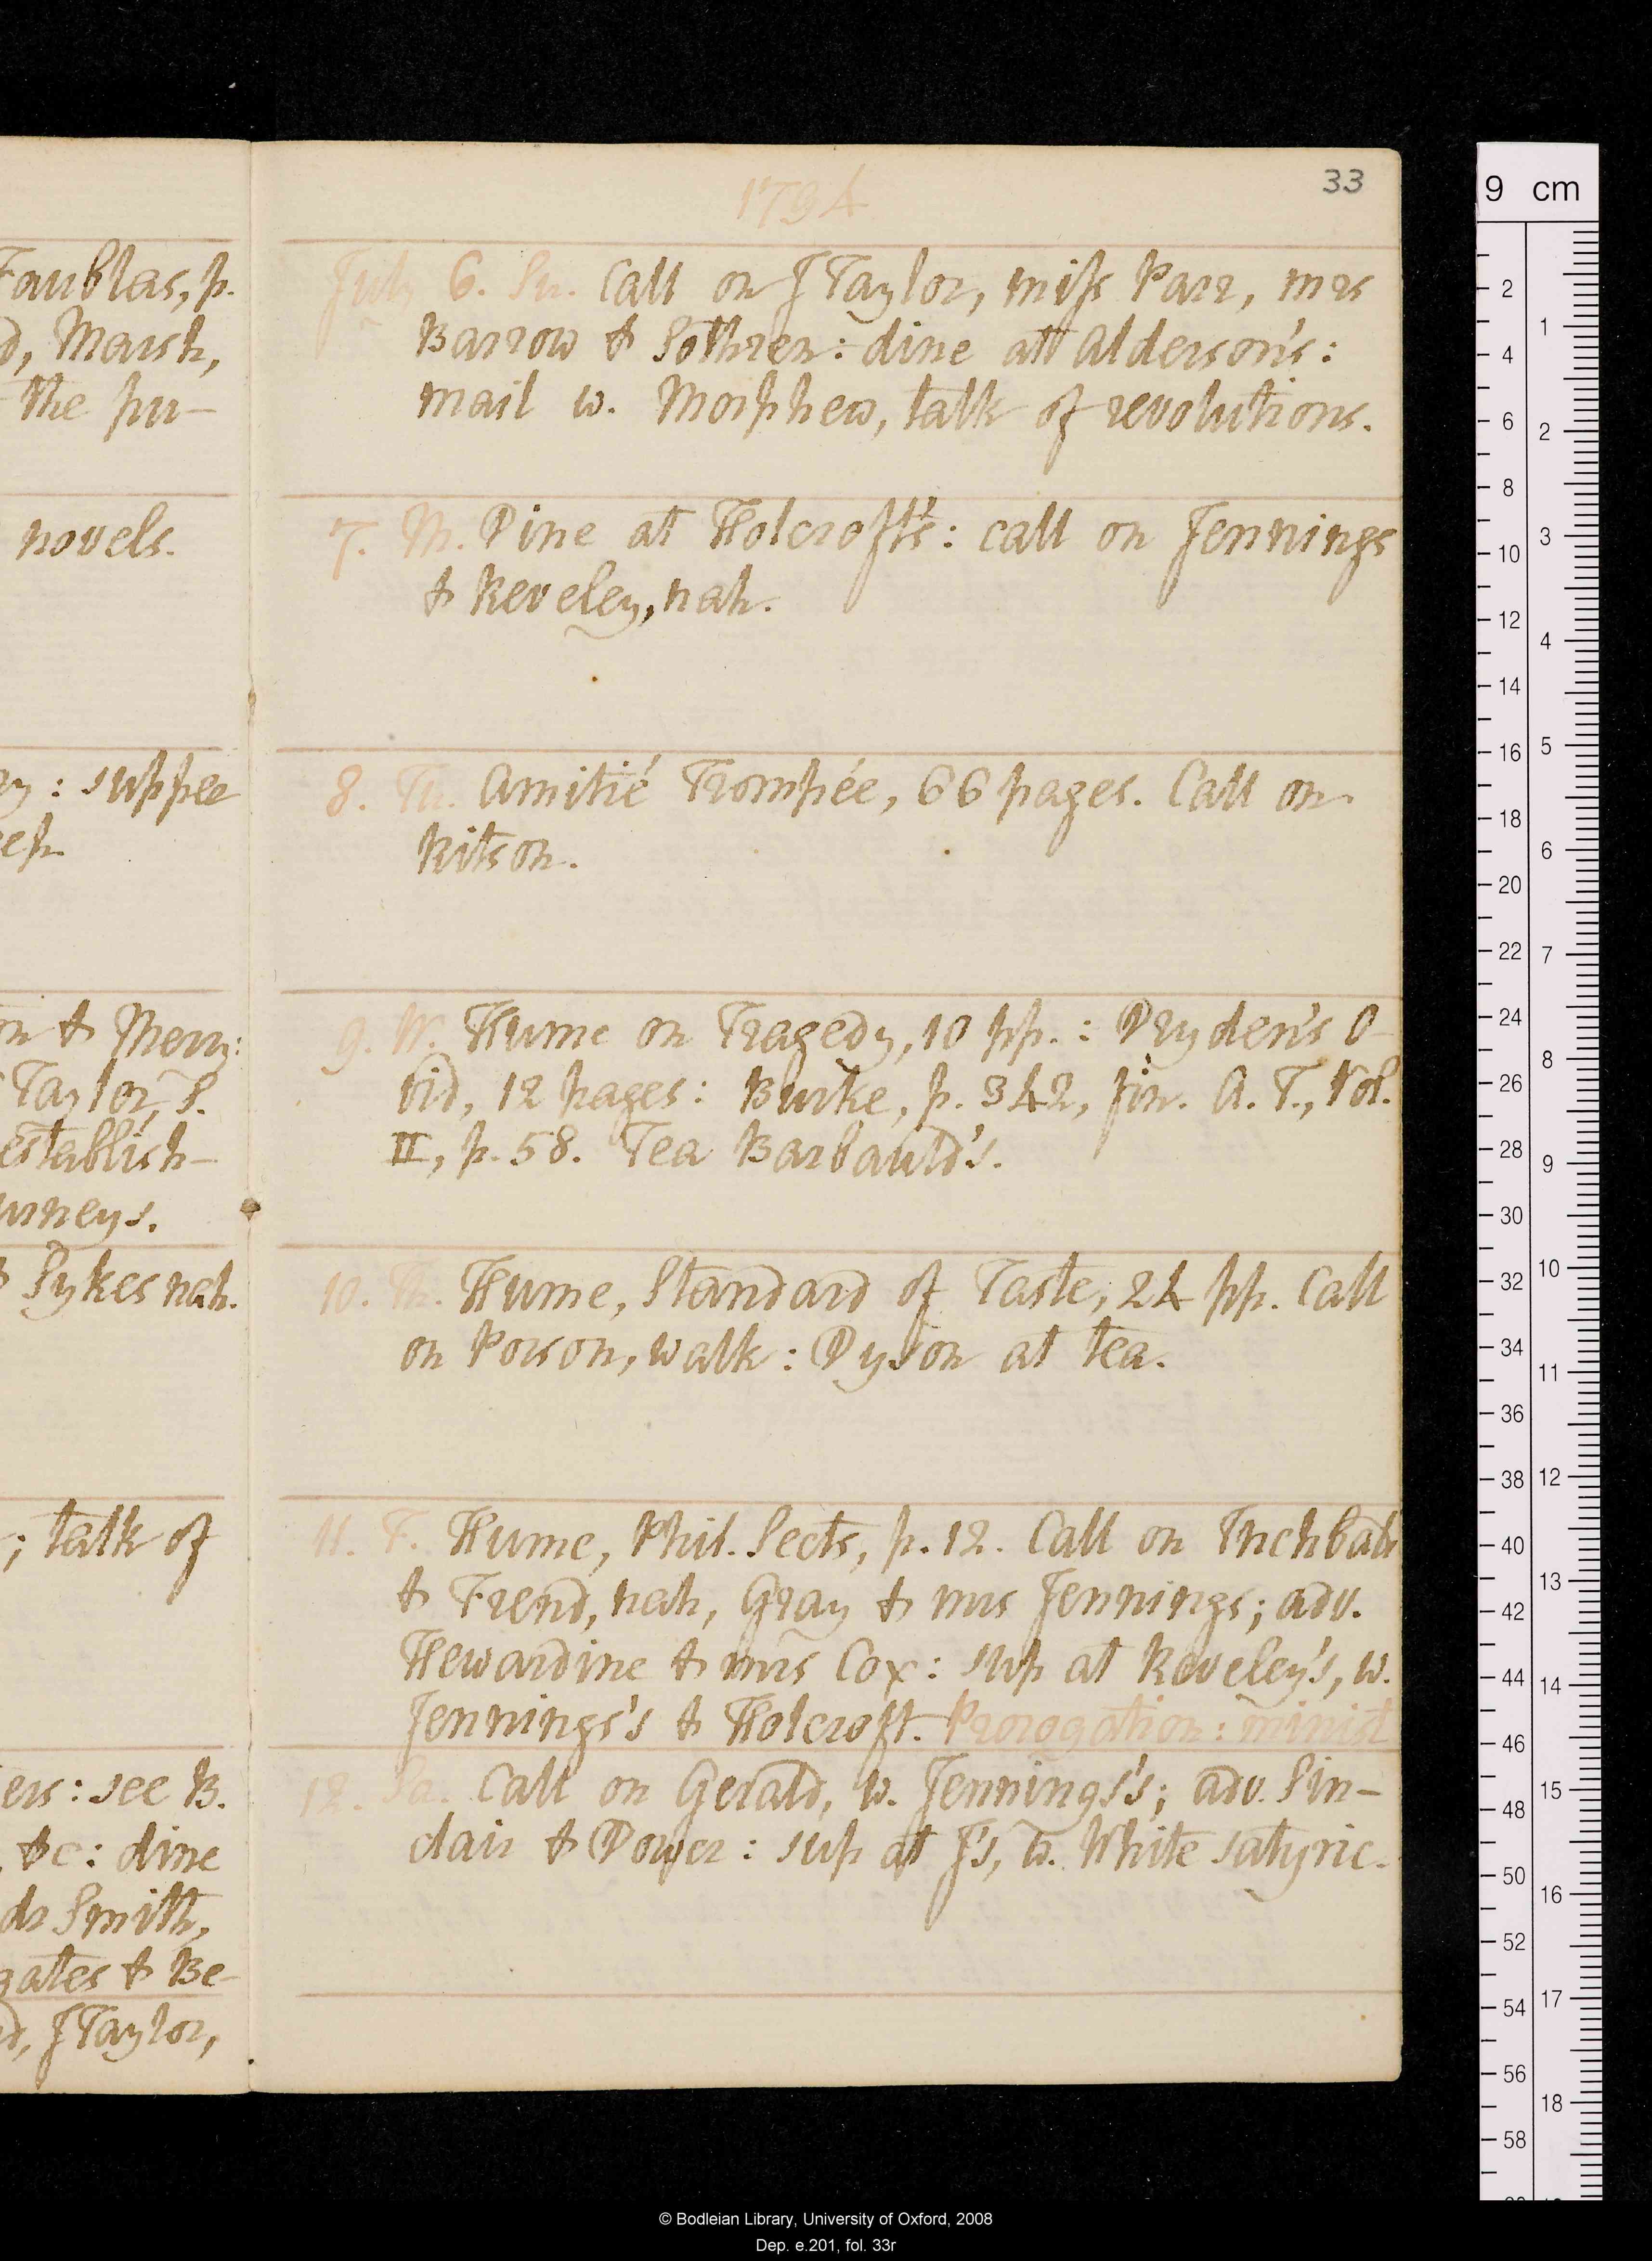 Faublas, p.
d, Marsh,
the pu-
novels.
: suppee
ep.
n & Merry:
Taylor, S.
establish-
urneys.
Sykes nah.
; talk of
ers: see B.
, &c: dine
dr Smith,
gates & Be-
d, JTaylor,
33
1794
July 6. Su. Call on JTaylor, miss Parr, mrs
Barrow & Sothren: dine at Alderson's:
mail w. Morphew, talk of revolutions.
7. M. Dine at Holcroft's: call on Jennings
& Reveley, nah.
8. Tu. Amitié Trompée, 66 pages. Call on
Ritson.
9. W. Hume on Tragedy, 10 pp.: Dryden's O-
vid, 12 pages: Burke, p. 342, fin. A. T., Vol.
II, p. 58. Tea Barbauld's.
10. Th. Hume, Standard of Taste, 24 pp. Call
on Porson, walk: Dyson at tea.
11. F. Hume, Phil. Sects, p. 12. Call on Inchbald
& Frend, nah, Gray & mrs Jennings; adv.
Hewardine & mrs Cox: sup at Reveley's, w.
Jennings's & Holcroft. Prorogation: minist
12. Sa. Call on Gerald, w. Jennings's; adv. Sin-
clair & Power: sup at J's, w. White satyric.
9 cm
2
4
6
8
10
12
14
16
18
20
22
24
26
28
30
32
34
36
38
40
42
44
46
48
50
52
54
56
58
1
2
3
4
5
6
7
8
9
10
11
12
13
14
15
16
17
18
© Bodleian Library, University of Oxford, 2008
Dep. e.201, fol. 33r